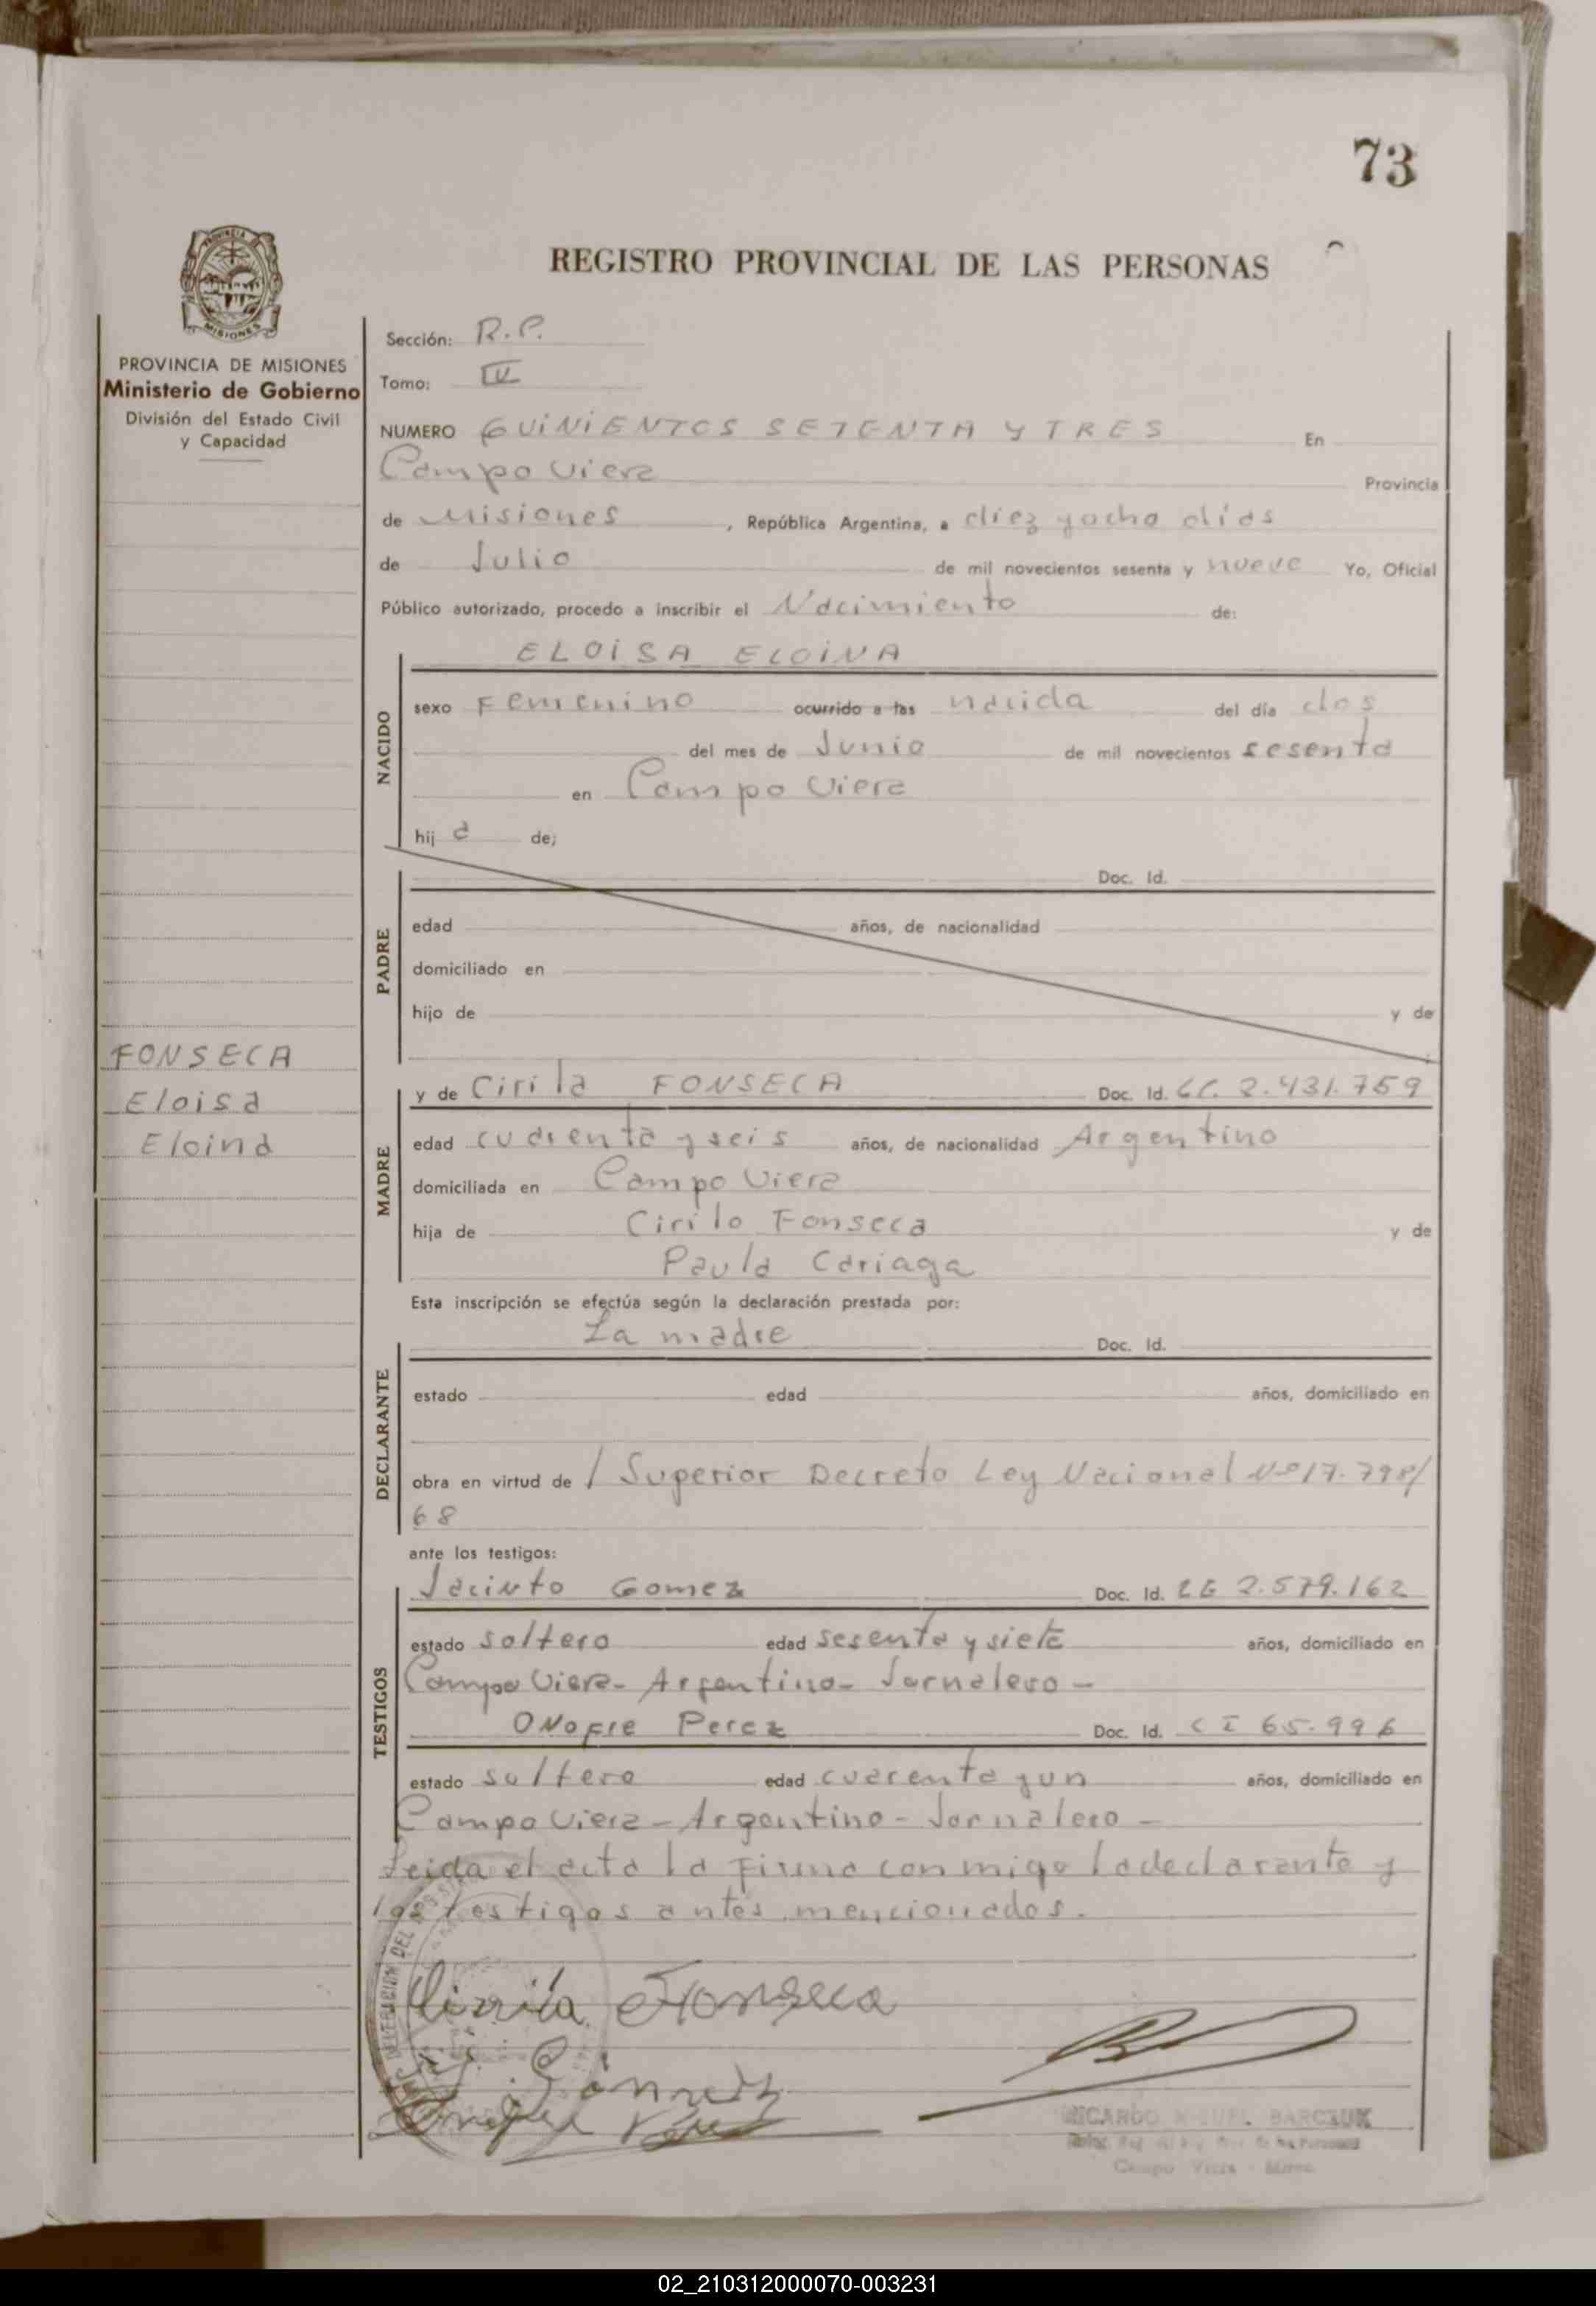 73
REGISTRO PROVINCIAL DE LAS PERSONAS
PROVINCIA DE
MISIONES
PROVINCIA DE MISIONES
Ministerio de Gobierno
División del Estado Civil
y Capacidad
Sección: R.P.
Tomo: IV
NUMERO QUINIENTOS SETENTA Y TRES En
Campo Viera Provincia
de Misiones, República Argentina, a diez yocho días
de Julio de mil novecientos sesenta y nueve Yo, Oficial
Público autorizado, procedo a inscribir el Nacimiento de:
NACIDO
ELOISA ELOINA
sexo Femenino ocurrido a las nacida del día dos
del mes de Junio de mil novecientos sesenta
en Campo Viera
hij a de;
PADRE
Doc. Id.
edad años, de nacionalidad
domiciliado en
hijo de y de
FONSECA
Eloisa
Eloina
MADRE
y de Cirila FONSECA Doc. Id. LC. 2.431.759
edad cuarenta y seis años, de nacionalidad Argentino
domiciliada en Campo Viera
hija de Cirilo Fonseca y de
Paula Cariaga
Esta inscripción se efectúa según la declaración prestada por:
DECLARANTE
La madre Doc. Id.
estado edad años, domiciliado en
obra en virtud de / Superior Decreto Ley Nacional Nº 17.798/
68
ante los testigos:
TESTIGOS
Jacinto Gomez Doc. Id. LE 2.579.162
estado soltero edad sesenta y siete años, domiciliado en
Campo Viera- Argentino- Jornalero-
ONOFRE Perez Doc. Id. CI 65.996
estado soltero edad cuarenta y un años, domiciliado en
Campo Viera - Argentino - Jornalero -
Leida el acta la firma con migo la declarante y
los testigos antes mencionados.
DELEGACION DEL
Cirila Fonseca
Gomez
Onofre Perez
RICARDO MIGUEL BARCZUK
Campo Viera - Mnes.
02_210312000070-003231